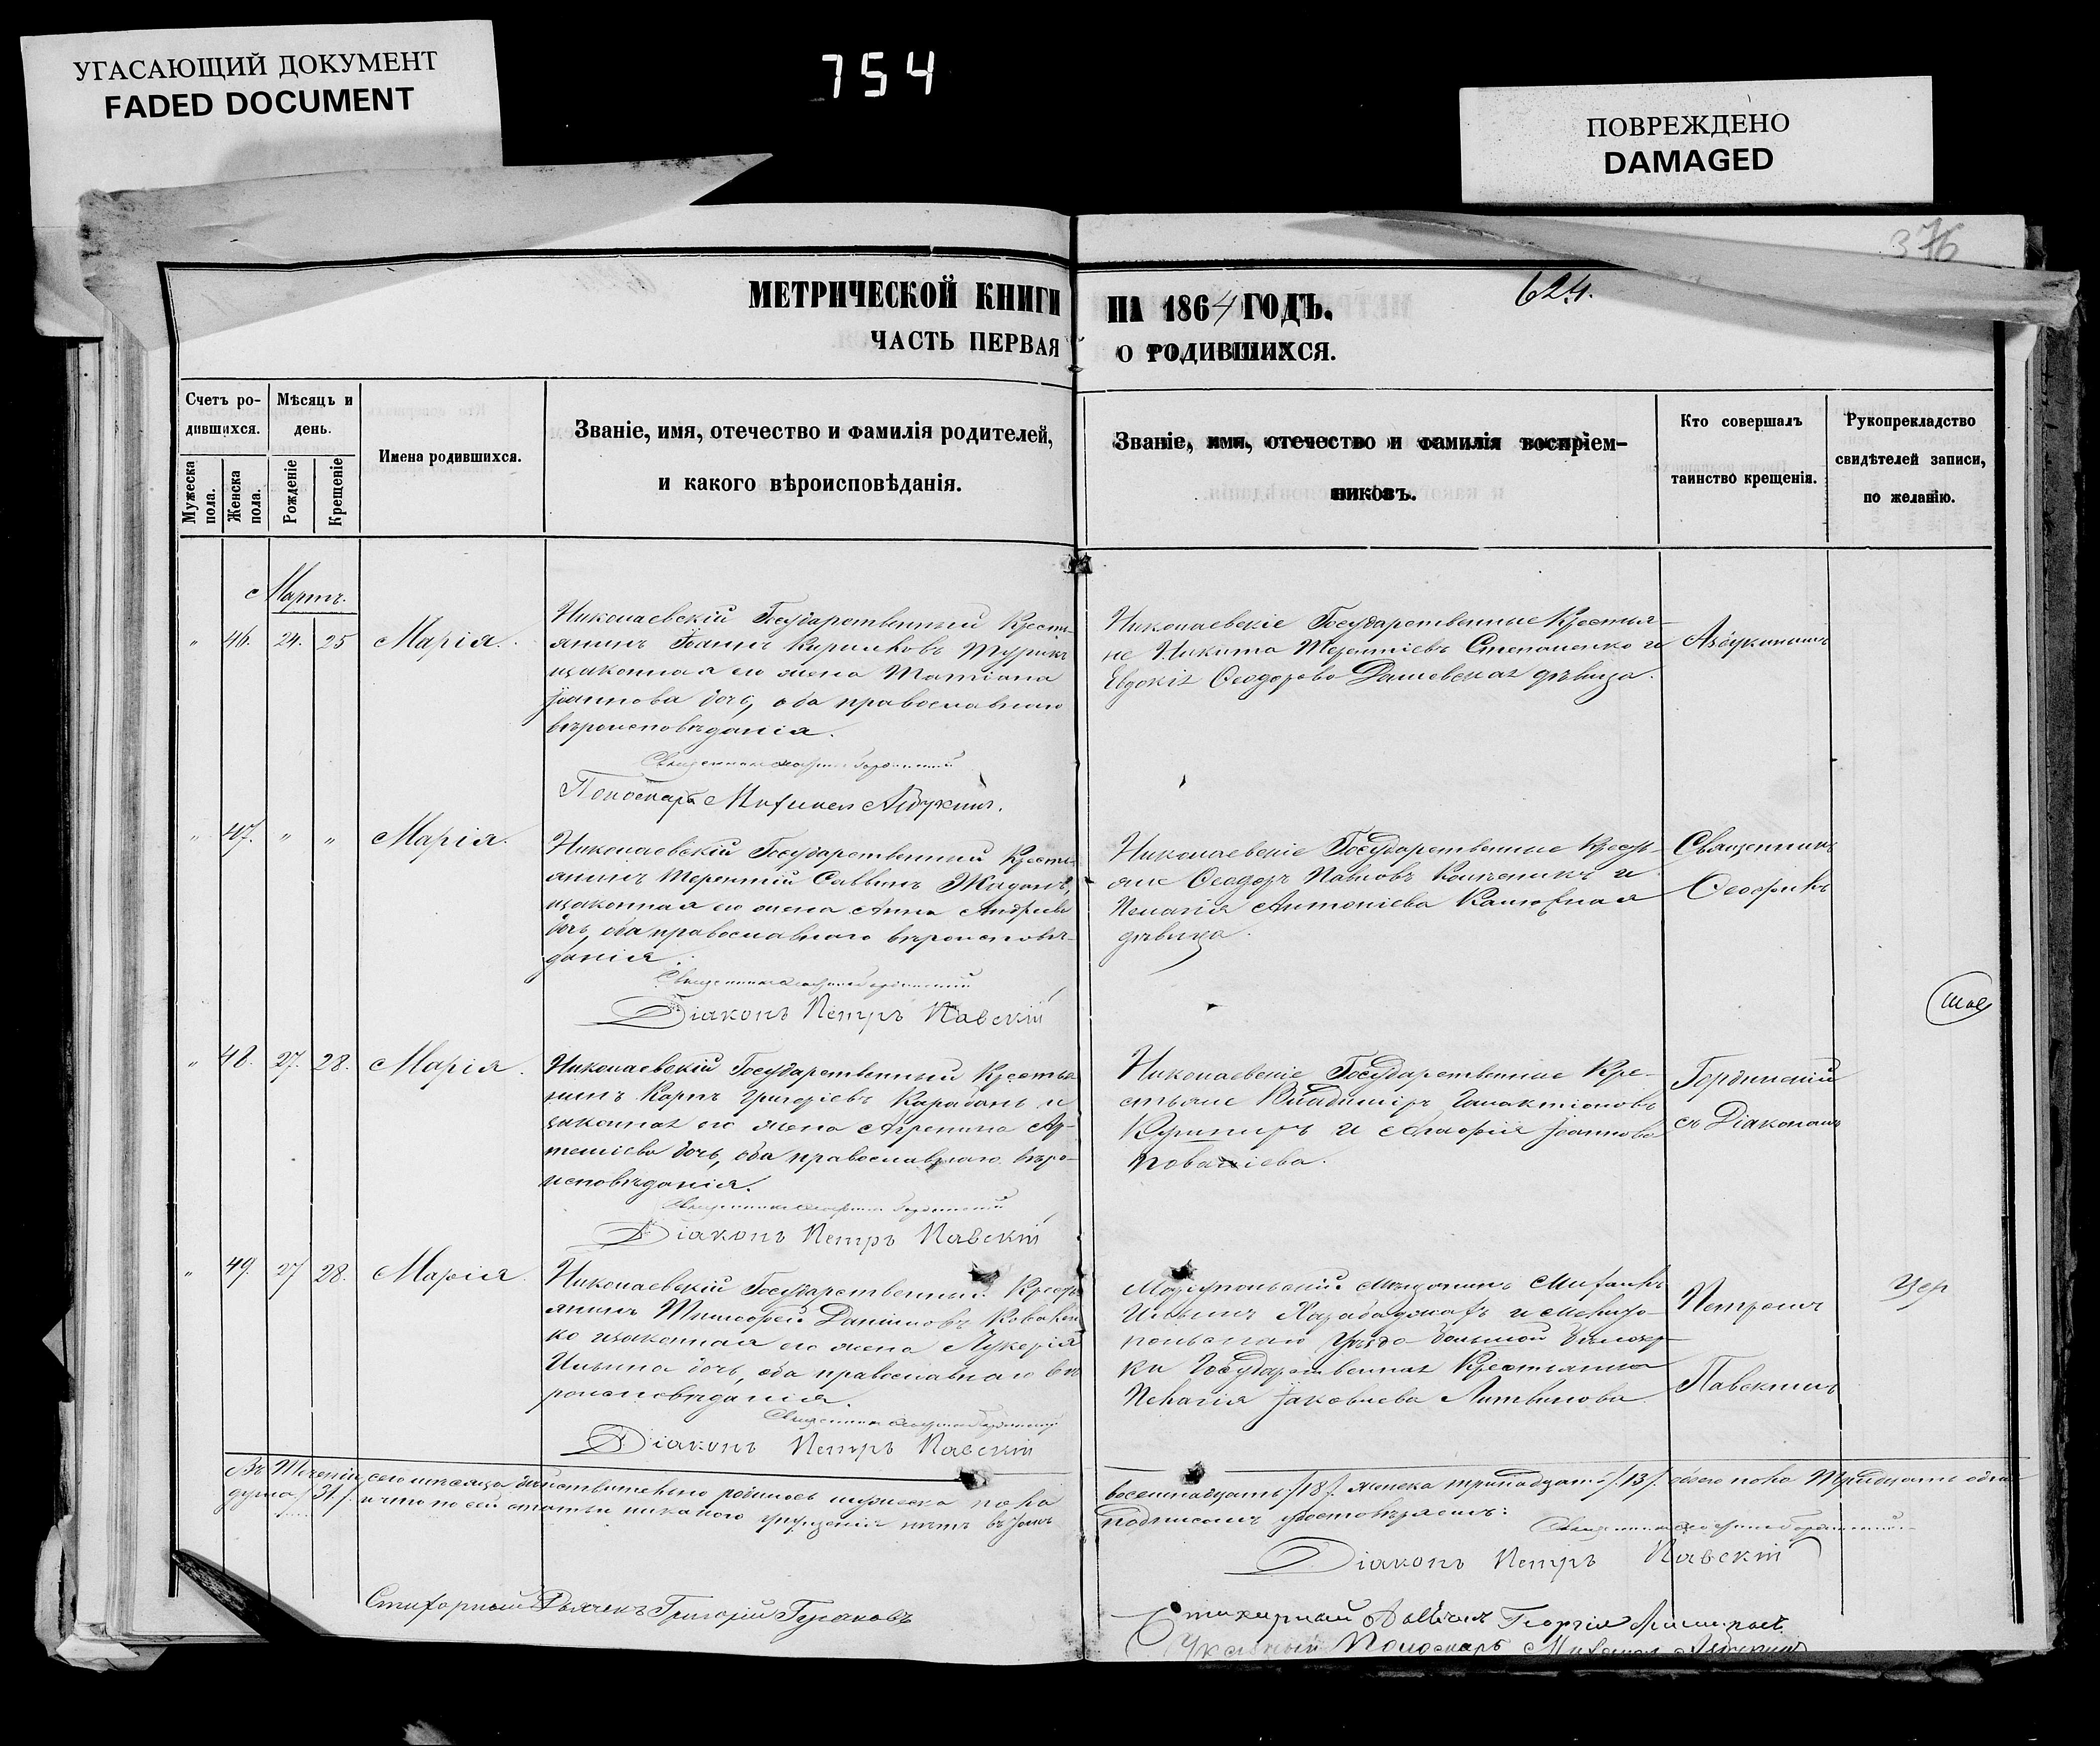 УГАСАЮЩИЙ ДОКУМЕНТ
FADED DOCUMENT
754
ПОВРЕЖДЕНО
DAMAGED
376
624.
МЕТРИЧЕСКОЙ КНИГИ НА 1864 ГОДЪ.
ЧАСТЬ ПЕРВАЯ О РОДИВШИХСЯ.
Счетъ ро-
дившихся.
Мужеска пола.
Женска пола.
Мѣсяцъ и
день.
Рожденіе
Крещеніе
Имена родившихся.
Званіе, имя, отечество и фамилія родителей,
и какого вѣроисповѣданія.
Званіе, имя, отечество и фамилія воспріем-
никовъ.
Кто совершалъ
таинство крещенія.
Рукоприкладство
свидѣтелей записи,
по желанію.
Мартъ.
" 46. 24. 25 Марія.
Николаевскій Государственный Кресть-
янинъ Іоаннъ Кириловъ
и законная его жена Татіана
Іоаннова дочь, оба православнаго
вѣроисповѣданія.
Пономарь Михаилъ Азбукинъ.
Николаевскіе Государственные Крестья-
не Никита Терентіевъ Степаненко и
Евдокія Ѳеодорова Дашевская дѣвица.
Азбукинымъ
" 47. " " Марія.
Николаевскій Государственный Кресть-
янинъ Терентій Саввинъ Жаданъ,
и законная его жена Анна Андреева
дочь, оба православнаго вѣроисповѣ-
данія.
Діаконъ Петръ Павскій
Николаевскіе Государственные Кресть-
яне Ѳеодоръ
Пелагія Антоніева
дѣвица.
Священникъ
" 48. 27. 28. Марія.
Николаевскій Государственный Крестья
нинъ Карпъ Григоріевъ Карабанъ и
законная его жена Агрепина Ар-
теміева дочь, оба православнаго вѣро-
исповѣданія.
Діаконъ Петръ Павскій
Николаевскіе Государственные Кре-
стьяне Владиміръ Галактіоновъ
и Іоаннова
Гординскій
съ Діакономъ
" 49. 27 28. Марія.
Николаевскій Государственный Кресть
янинъ Тимофей Даніиловъ Ковален
ко и законная его жена Лукерія
Ильина дочь, оба православнаго вѣ
роисповѣданія.
Діаконъ Петръ Павскій
Маріупольскій Мѣщанинъ Михаилъ
Ильинъ и Мелито-
польскаго уѣзда большой Бѣлозер-
ки Государственная Крестьянка
Пелагія Іаковлева Литвинова.
Петромъ
Павскимъ
Въ теченіи сего мѣсяца дѣйствительно родилось мужеска пола восемнадцать /18/. женска тринадцать /13/. обоего пола тридцать одна
душа /31/. и что по сей статьи никакого упущенія нѣтъ въ томъ подписомъ удостовѣряемъ:
Діаконъ Петръ Павскій
Стихарный Дьячекъ Григорій
Стихарный Георгій
Пономарь Михаилъ Азбукинъ